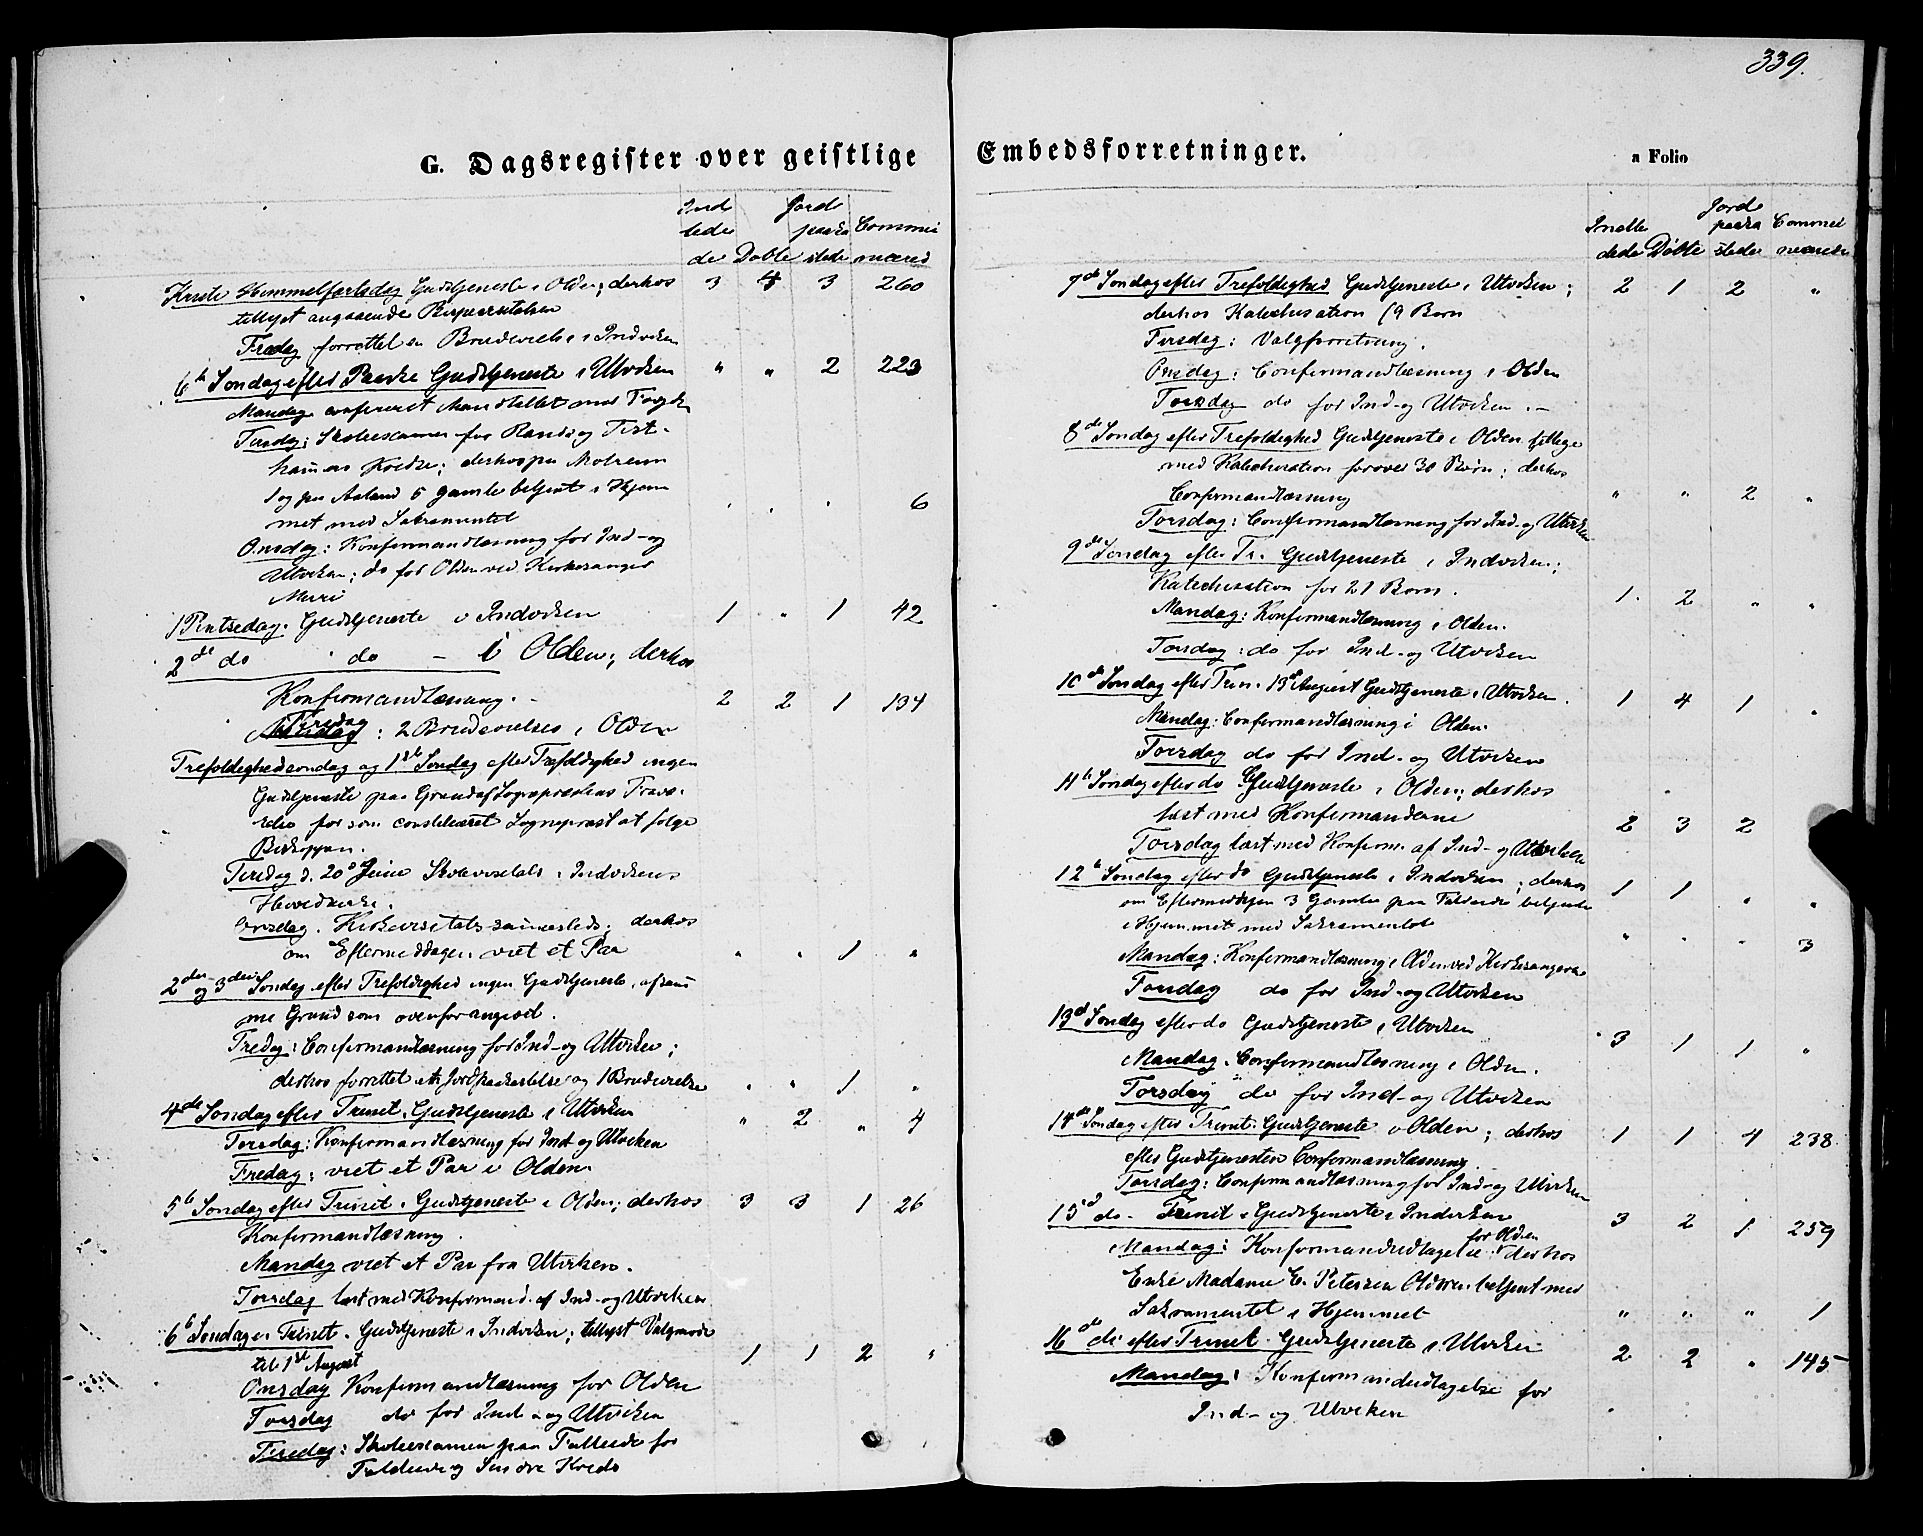 339.
G. Dagsregister over geistlige Embedsforretninger.
a Folio
Ind Jord
lede paaka Commu
de Døbte stede nicered
Kristi Himmelfartsdag Gudstjeneste i Olden; derhos 3 4 3 260
tillyst angaaende
Fredag forrettet en Brudevielse i Indviken
6te Søndag efter Paaske Gudstjeneste i Utviken " " 2 223
Mandag confereret Mandtallet med Fogden
Tirsdag: Skoleexamen for Rands og Tist-
hammers Kredse; derhos paa
1 og paa Aaland 5 gamle betjent i Hjem
met med Sakramentet 6
Onsdag: Konfirmandlæsning for Ind- og
Utviken; do for Olden ved Kirkesanger
Muri
1 Pintsedag. Gudstjeneste i Indviken 1 " 1 42
2de do do - i Olden; derhos
Konfirmandlæsning. 2 2 1 134
Tirsdag: 2 Brudevielser i Olden
Trefoldighedssøndag og 1ste Søndag efter Trefoldighed ingen
Gudstjeneste paa Grund af Sognepræstens Fravæ-
relse for som constitueret Sognepræst at følge
Biskoppen.
Tirsdag d. 20de Juni Skolevisitats i Indvikens
Hovedkirke.
Onsdag. Kirkevisitats sammesteds; derhos
om Eftermiddagen viet et Par " " 1 "
2den og 3die Søndag efter Trefoldighed ingen Gudstjeneste, af sam
me Grund som ovenfor angivet.
Fredag: Confirmandlæsning for Ind- og Utviken;
derhos forrettet en Jordpaakastelse og 1 Brudevielse " " 1 "
4de Søndag efter Trinit. Gudstjeneste i Utviken " 2 " 4
Torsdag: Konfirmandlæsning for Ind- og Utviken
Fredag: viet et Par i Olden
5te Søndag efter Trinit. Gudstjeneste i Olden; derhos 3 3 1 26
Konfirmandlæsning.
Mandag viet et Par fra Utviken.
Torsdag læst med Konfirmand. af Ind- og Utviken
6te Søndag e. Trinit. Gudstjeneste i Indviken; tillyst Valgmøde
til 1ste August 1 1 2 "
Onsdag Konfirmandlæsning for Olden
Torsdag do for Ind- og Utviken
Tirsdag: Skoleexamen paa Faleide for
Faleide og Søndre Kreds
Jord
Indle paaka Commu
dede Døbte stede nicerede
7de Søndag efter Trefoldighed Gudstjeneste i Utviken; 2 1 2 "
derhos Katechisation (9 Børn
Tirsdag: Valgforretning.
Onsdag: Confirmandlæsning i Olden
Torsdag do for Ind- og Utviken.-
8de Søndag efter Trefoldighed Gudstjeneste i Olden tillige
med Katechisation for over 30 Børn; derhos
Confirmandlæsning " " 2 "
Torsdag: Confirmandlæsning for Ind- og Utviken
9de Søndag efter Tr. Gudstjeneste i Indviken;
Katechisation for 21 Børn. 1 2 " "
Mandag: Konfirmandlæsning i Olden.
Torsdag: do for Ind- og Utviken
10de Søndag efter Trin. 13de August Gudstjeneste i Utviken. 1 4 1 "
Mandag: Confirmandlæsning i Olden.
Torsdag do for Ind- og Utviken
11te Søndag efter do Gudstjeneste i Olden; derhos
læst med Konfirmanderne 2 3 2
Torsdag læst med Konfirm. af Ind- og Utviken
12te Søndag efter do Gudstjeneste i Indviken; derhos 1 1 " "
om Eftermiddagen 3 Gamle paa Faleide betjente
i Hjemmet med Sakramentet " " " 3
Mandag: Konfirmandlæsning i Olden ved Kirkesangeren
Torsdag do for Ind- og Utviken
13de Søndag efter do Gudstjeneste i Utviken 3 1 1 "
Mandag. Confirmandlæsning i Olden.
Torsdag do for Ind- og Utviken
14de Søndag efter Trinit. Gudstjeneste i Olden; derhos 1 1 4 238
efter Gudstjenesten Confirmandlæsning.
Torsdag: Confirmandlæsning for Ind- og Utviken
15d do. Trinit. Gudstjeneste i Indviken 3 2 1 259
Mandag: Konfirmandudtagelse for Olden derhos
Enke Madame E. Petersen Olden betjent med
Sakramentet i Hjemmet " " " 1
16de do efter Trinit. Gudstjeneste i Utviken 2 2 " 145
Mandag: Konfirmandudtagelse for
Ind- og Utviken